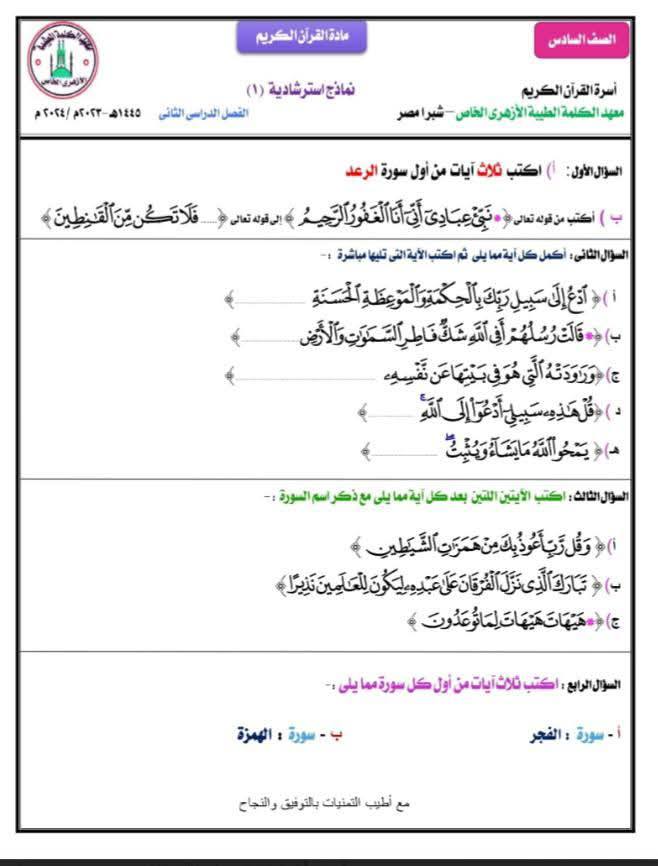 الصف السادس
مادة القرآن الكريم
أسرة القرآن الكريم
نماذج استرشادية (١)
معهد الكلمة الطيبة الأزهرى الخاص – شبرا مصر
الفصل الدراسى الثانى
١٤٤٥هـ -٢٠٢٣م / ٢٠٢٤ م
السؤال الأول : أ ) اكتب ثلاث آيات من أول سورة الرعد
ب ) أكتب من قوله تعالى ﴿ ۞ نَبِّئْ عِبَادِىٓ أَنِّىٓ أَنَا ٱلْغَفُورُ ٱلرَّحِيمُ ﴾ إلى قوله تعالى ﴿ ..... فَلَا تَكُن مِّنَ ٱلْقَٰنِطِينَ ﴾
السؤال الثانى : أكمل كل آية مما يلى ثم اكتب الآية التى تليها مباشرة : -
أ ) ﴿ ٱدْعُ إِلَىٰ سَبِيلِ رَبِّكَ بِٱلْحِكْمَةِ وَٱلْمَوْعِظَةِ ٱلْحَسَنَةِ .................. ﴾
ب) ﴿ ۞ قَالَتْ رُسُلُهُمْ أَفِى ٱللَّهِ شَكٌّ فَاطِرِ ٱلسَّمَٰوَٰتِ وَٱلْأَرْضِ .................. ﴾
ج) ﴿ وَرَٰوَدَتْهُ ٱلَّتِى هُوَ فِى بَيْتِهَا عَن نَّفْسِهِۦ .................. ﴾
د ) ﴿ قُلْ هَٰذِهِۦ سَبِيلِىٓ أَدْعُوٓا۟ إِلَى ٱللَّهِ ۚ ............ ﴾
هـ) ﴿ يَمْحُوا۟ ٱللَّهُ مَا يَشَآءُ وَيُثْبِتُ ۖ .................. ﴾
السؤال الثالث : اكتب الآيتين اللتين بعد كل آية مما يلى مع ذكر اسم السورة : -
أ ) ﴿ وَقُل رَّبِّ أَعُوذُ بِكَ مِنْ هَمَزَٰتِ ٱلشَّيَٰطِينِ ﴾
ب) ﴿ تَبَارَكَ ٱلَّذِى نَزَّلَ ٱلْفُرْقَانَ عَلَىٰ عَبْدِهِۦ لِيَكُونَ لِلْعَٰلَمِينَ نَذِيرًا ﴾
ج) ﴿ ۞ هَيْهَاتَ هَيْهَاتَ لِمَا تُوعَدُونَ ﴾
السؤال الرابع : اكتب ثلاث آيات من أول كل سورة مما يلى : -
أ - سورة : الفجر
ب - سورة : الهمزة
مع أطيب التمنيات بالتوفيق والنجاح